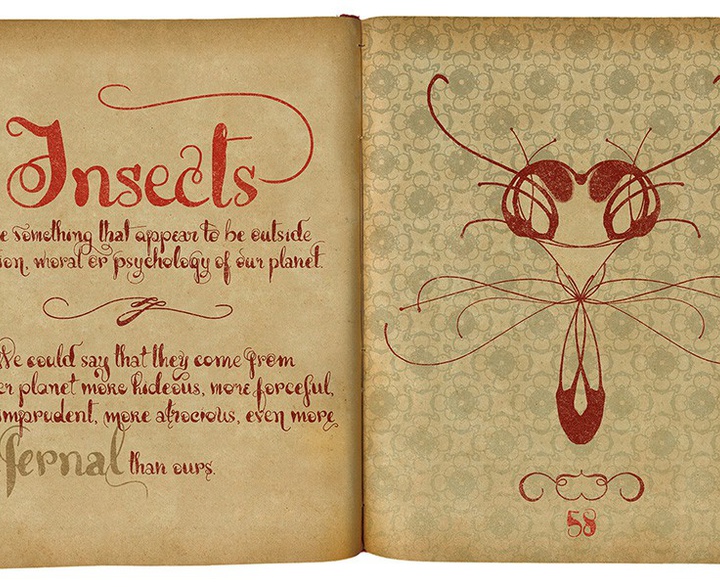 Insects
something that appear to be outside
moral or psychology of our planet.
We could say that they come from
planet more hideous, more forceful,
imprudent, more atrocious, even more
fernal than ours.
58